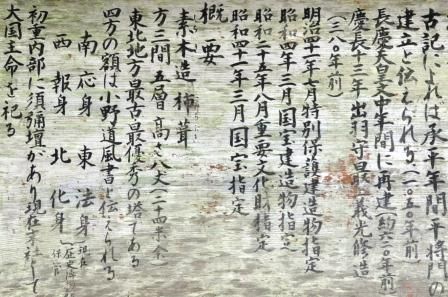 古記によれば承平年間平将門の
建立と伝えられる(一〇五〇年前)
長慶天皇文中年間に再建(約六一〇年前)
慶長十三年出羽守最上義光修造
(三八〇年前)
明治四十一年七月特別保護建造物指定
昭和四年三月国宝建造物指定
昭和二十五年八月重要文化財指定
昭和四十一年三月国宝指定
概要
素木造杮葺
方三間五層高さ八丈(二十四米)余
東北地方最古最優秀の塔である
四方の額は小野道風書と伝えられる
南応身 東法身
西報身 北化身
初重内部に須彌壇があり現在末社として
大国主命を祀る